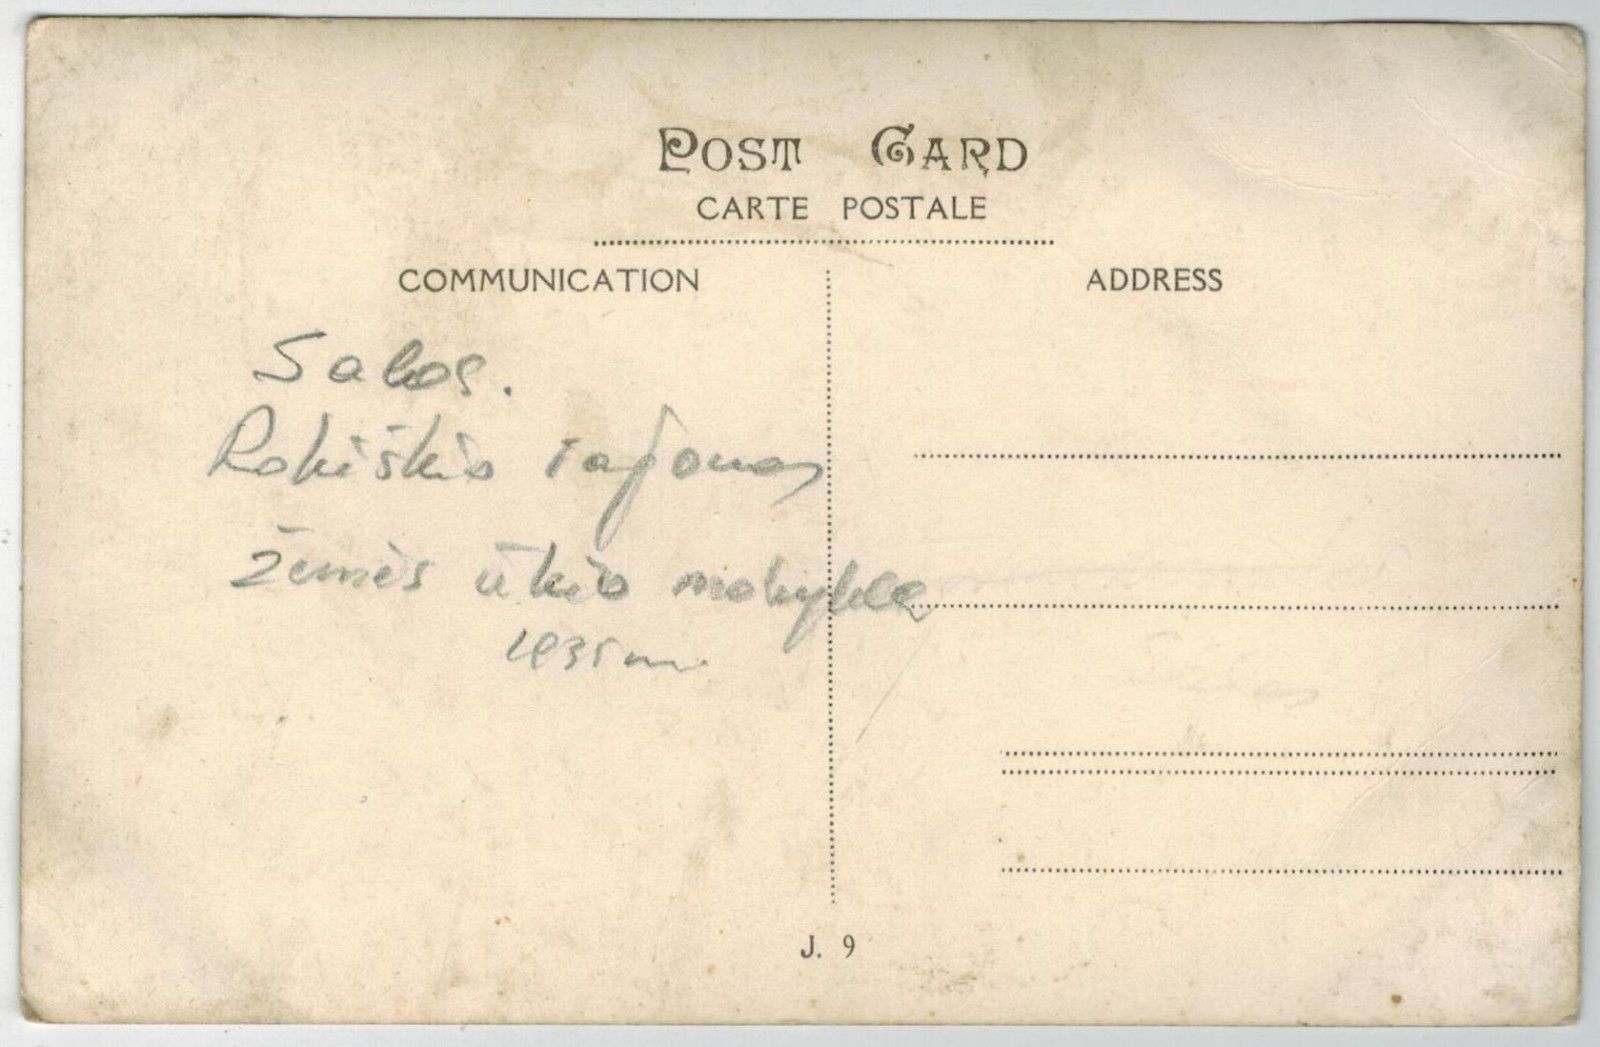 POST CARD
CARTE POSTALE
COMMUNICATION
ADDRESS
Salos.
Rokiškio rajonas
Žemės ūkio mokykla
1935 m.
J. 9